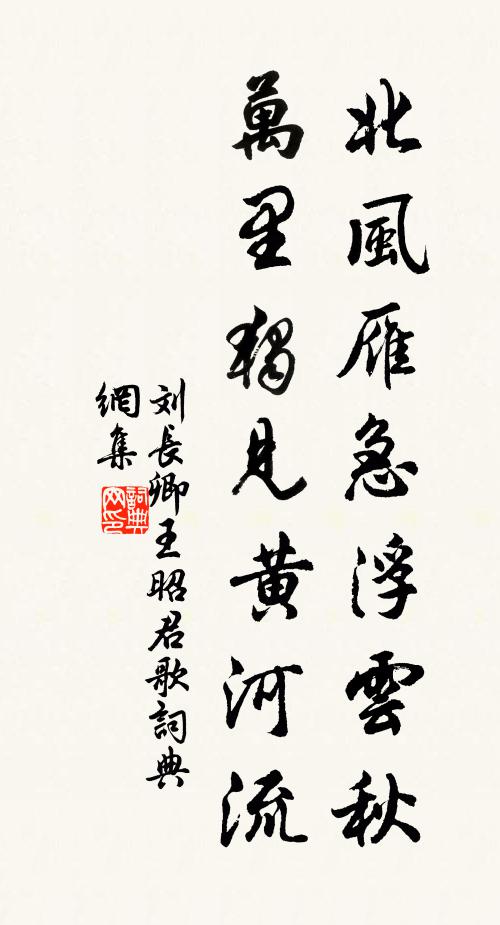 北風雁急浮雲秋
萬里獨見黄河流
刘長卿王昭君歌詞典
網集
詞典
网印